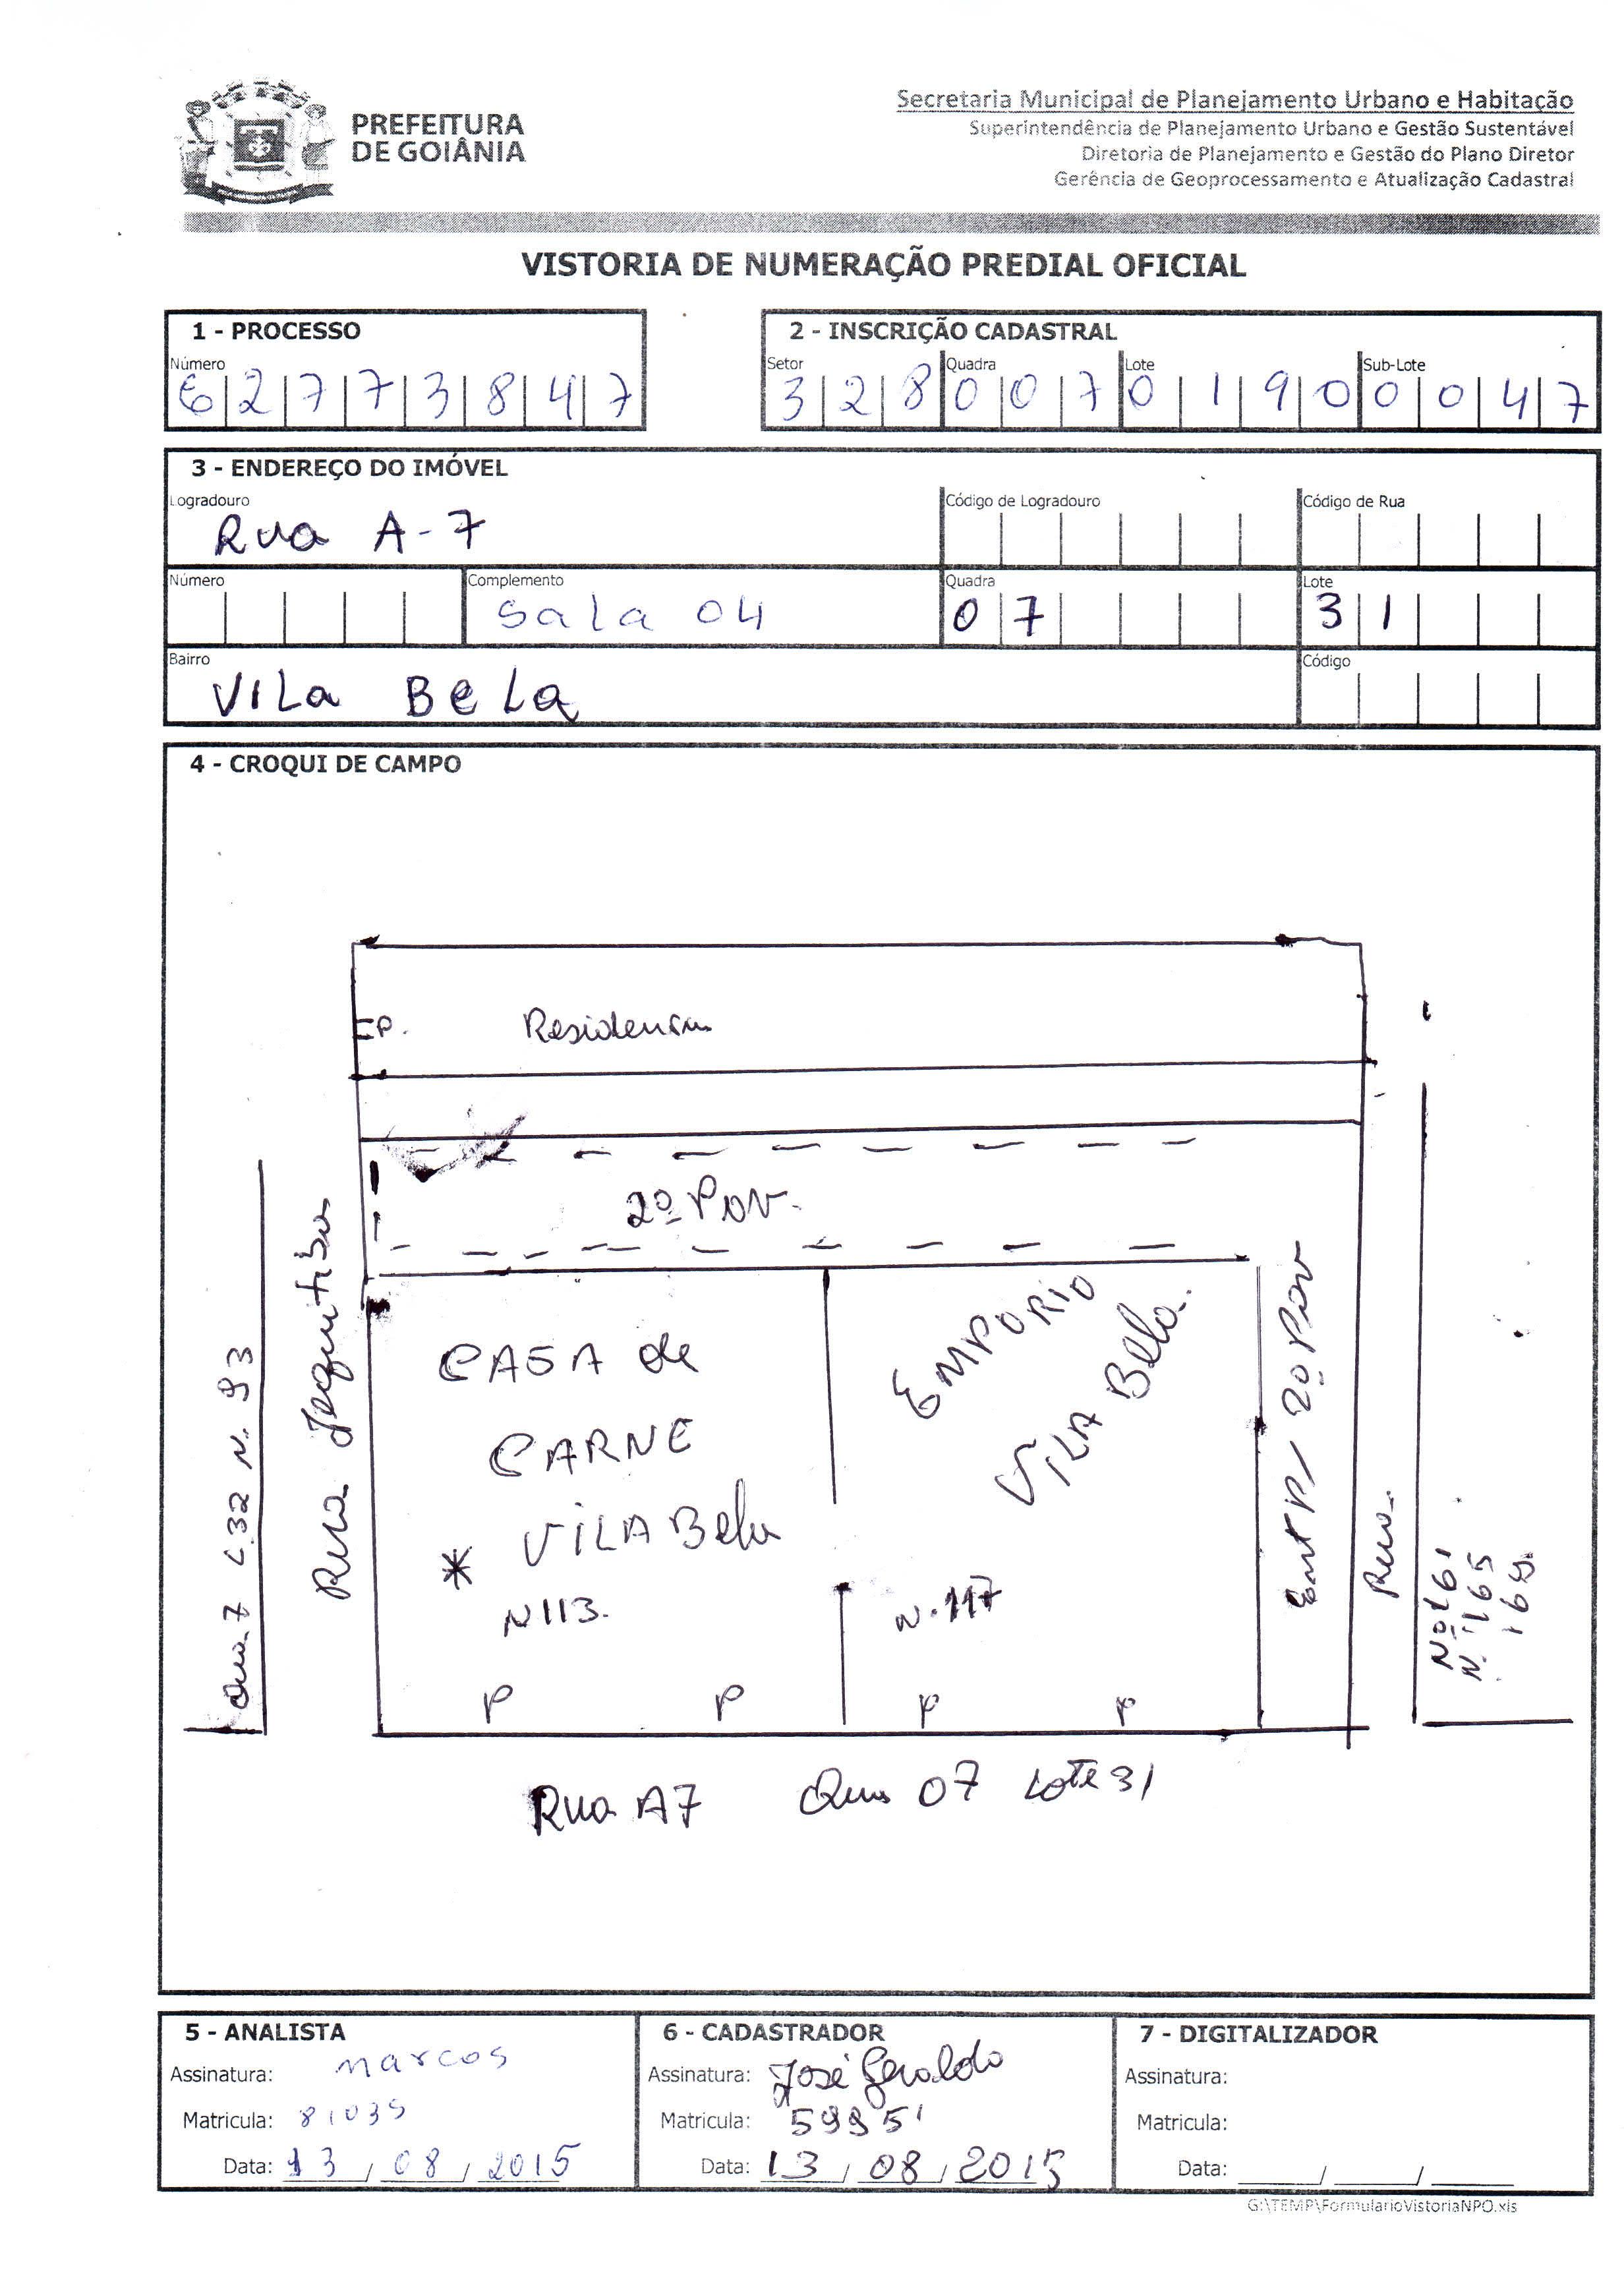 PREFEITURA
DE GOIÂNIA
Secretaria Municipal de Planejamento Urbano e Habitação
Superintendência de Planejamento Urbano e Gestão Sustentável
Diretoria de Planejamento e Gestão do Plano Diretor
Gerência de Geoprocessamento e Atualização Cadastral
VISTORIA DE NUMERAÇÃO PREDIAL OFICIAL
1 - PROCESSO
Número
6 2 7 7 3 8 4 7
2 - INSCRIÇÃO CADASTRAL
Setor Quadra Lote Sub-Lote
3 2 8 0 0 7 0 1 9 0 0 0 4 7
3 - ENDEREÇO DO IMÓVEL
Logradouro Código de Logradouro Código de Rua
Rua A-7
Número Complemento Quadra Lote
Sala 04 0 7 3 1
Bairro Código
Vila Bela
4 - CROQUI DE CAMPO
P.
2º Pav.
Rua Jequitiba
7 L.32 N. 93
CASA de
CARNE
VILA Bela
* N 113.
EMPORIO
VILA Bela.
N. 117
P P P P
Ent P/ 2º Pav
Nº 161
N. 165
169.
Rua A7 Qua 07 Lote 31
5 - ANALISTA
Assinatura: Marcos
Matricula: 81035
Data: 13 / 08 / 2015
6 - CADASTRADOR
Assinatura: José Geraldo
Matricula:
Data: 13 / 08 / 2015
7 - DIGITALIZADOR
Assinatura:
Matricula:
Data: / /
G:\TEMP\FormularioVistoriaNPO.xls